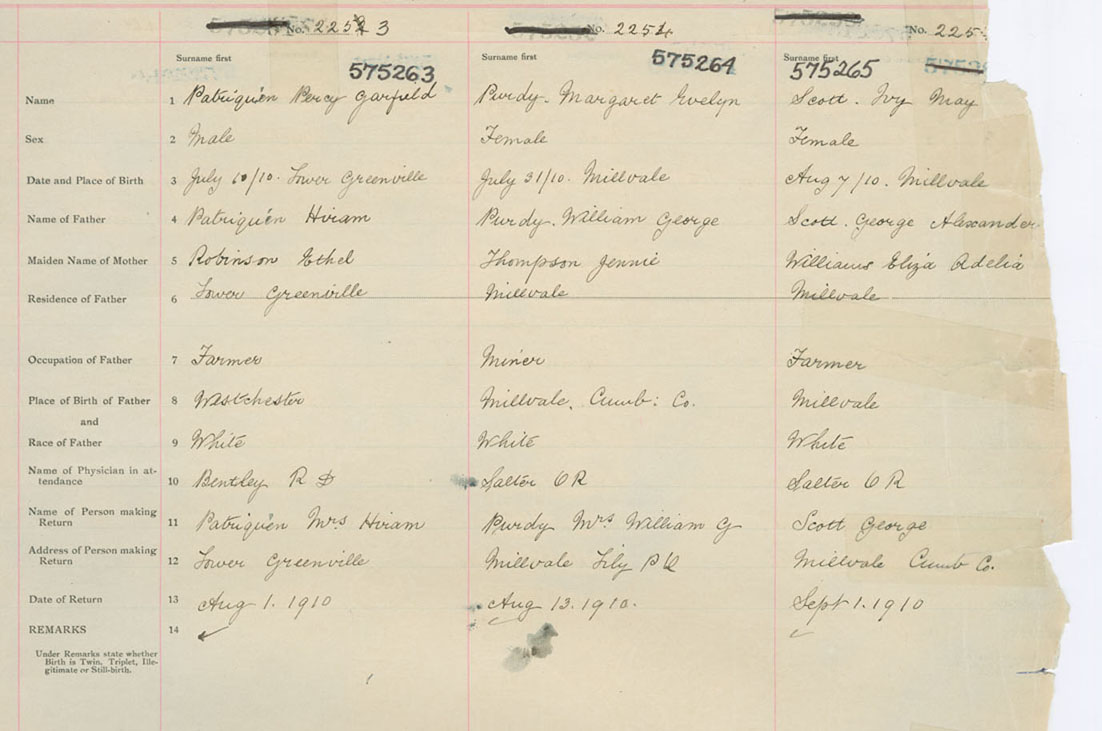 No. 2253 No. 2254 No. 225
Surname first Surname first Surname first
575263 575264 575265
Name 1 Patriquin Percy Garfield Purdy. Margaret Evelyn Scott. Ivy May
Sex 2 Male Female Female
Date and Place of Birth 3 July 10/10. Lower Greenville July 31/10. Millvale Aug 7/10. Millvale
Name of Father 4 Patriquin Hiram Purdy. William George Scott. George Alexander
Maiden Name of Mother 5 Robinson Ethel Thompson Jennie Williams Eliza Adelia
Residence of Father 6 Lower Greenville Millvale Millvale
Occupation of Father 7 Farmer Miner Farmer
Place of Birth of Father 8 Westchester Millvale, Cumb: Co. Millvale
and
Race of Father 9 White White White
Name of Physician in at-
tendance 10 Bentley R D Salter O R Salter O R
Name of Person making
Return 11 Patriquin Mrs Hiram Purdy Mrs William G Scott George
Address of Person making
Return 12 Lower Greenville Millvale Lily Millvale Cumb Co.
Date of Return 13 Aug 1. 1910 Aug 13. 1910. Sept 1. 1910
REMARKS 14
Under Remarks state whether
Birth is Twin. Triplet, Ille-
gitimate or Still-birth.